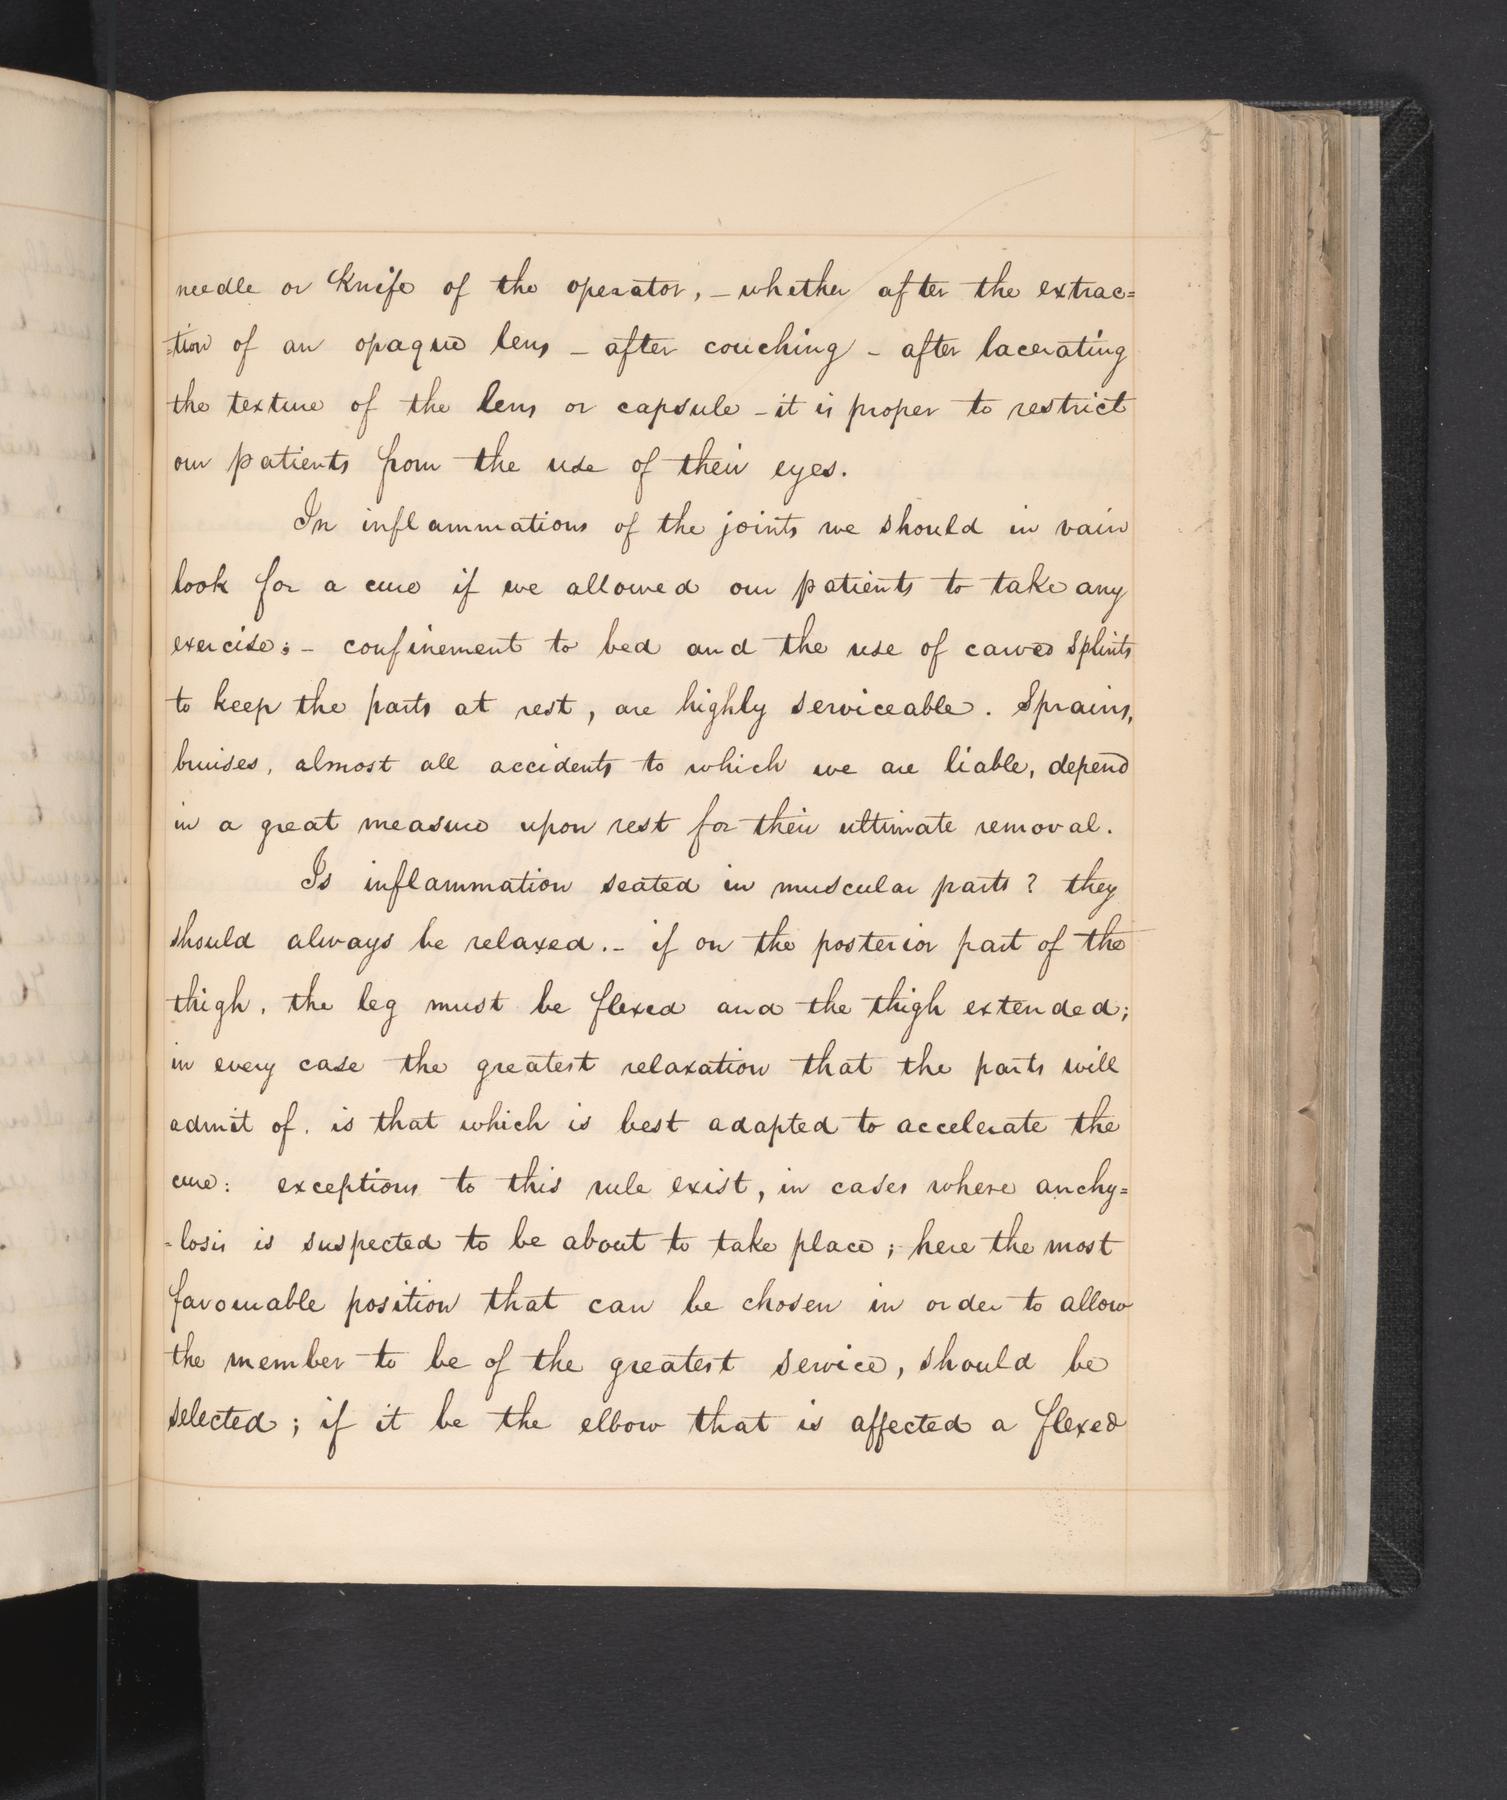 5
needle or Knife of the operator, – whether after the extrac=
=tion of an opaque lens – after couching – after lacerating
the texture of the lens or capsule – it is proper to restrict
our patients from the use of their eyes.
In inflammations of the joints we should in vain
look for a cure if we allowed our patients to take any
exercise; – confinement to bed and the use of carved Splints
to keep the parts at rest, are highly serviceable. Sprains,
bruises, almost all accidents to which we are liable, depend
in a great measure upon rest for their ultimate removal.
Is inflammation seated in muscular parts? they
should always be relaxed. – if on the posterior part of the
thigh, the leg must be flexed and the thigh extended;
in every case the greatest relaxation that the parts will
admit of, is that which is best adapted to accelerate the
cure: exceptions to this rule exist, in cases where anchy=
=losis is suspected to be about to take place; here the most
favourable position that can be chosen in order to allow
the member to be of the greatest service, should be
selected; if it be the elbow that is affected a flexed